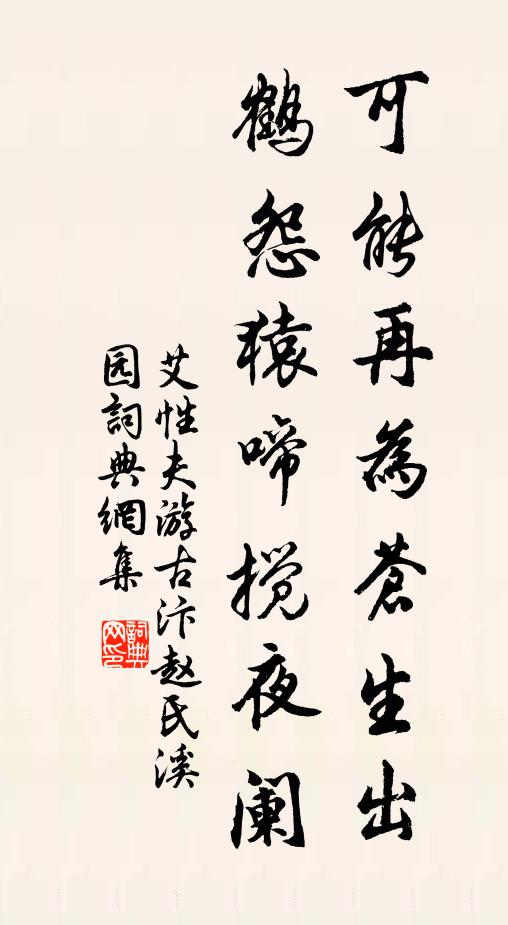 可能再為蒼生出
鶴怨猿啼攪夜阑
艾性夫游古汴赵氏溪
园詞典網集
詞典
网印